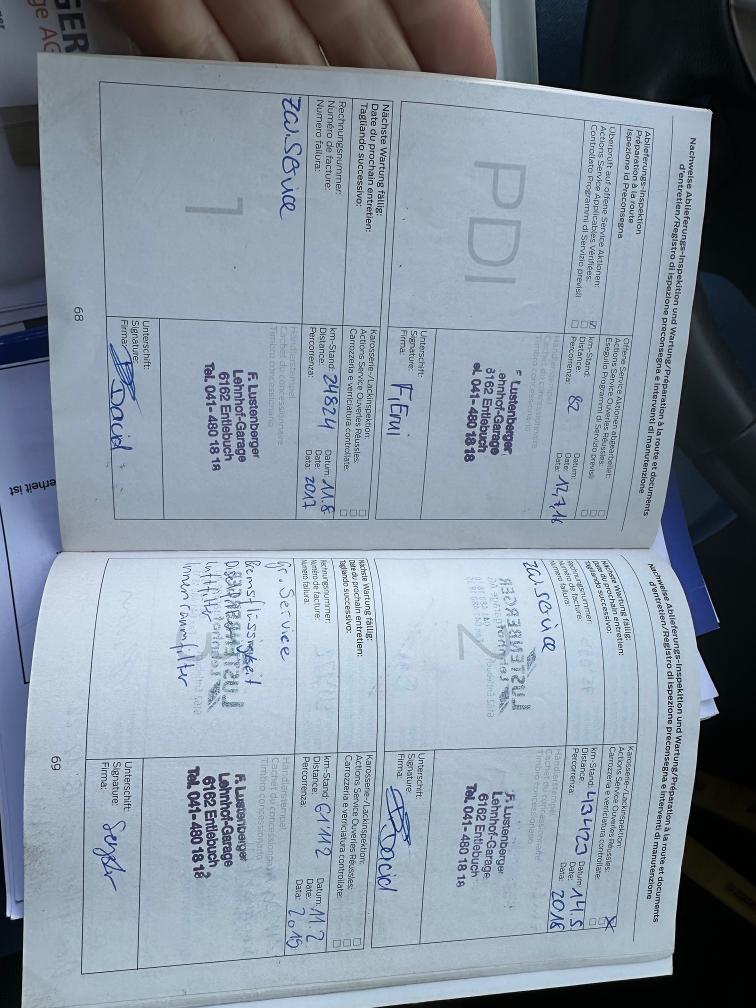 Nachweise Ablieferungs-Inspekition und Wartung/Préparation à la route et documents
d'entretien/Registro di ispezione preconsegna e interventi di manutenzione
Ablieferungs-Inspektion
Préparation à la route
Ispezione Id Preconsegna
Überprüft auf offene Service Aktionen:
Actions Service Applicables Vérifiées:
Controllato Programmi di Servizio previsti
PDI
Offene Service Aktionen abgearbeitet:
Actions Service Ouvertes Réussies:
Eseguito Programmi di Servizio previsti
km-Stand:
Distance: 82
Percorrenza:
Datum:
Date: 12.7.16
Data:
F. Lustenberger
Lehnhof-Garage
6162 Entlebuch
el. 041-480 18 18
Unterschrift:
Signature:
Firma:
Nächste Wartung fällig:
Date du prochain entretien:
Tagliando successivo:
Rechnungsnummer:
Numéro de facture:
Numero fattura:
Zw.Service
1
Karosserie-/Lackinspektion:
Actions Service Ouvertes Réussies:
Carrozzeria e verniciatura controllate:
km-Stand: 24824
Distance:
Percorrenza:
Datum: 11.8.
Date:
Data: 2017
Händlerstempel
Cachet du concessionnaire
Timbro concessionario
F. Lustenberger
Lehnhof-Garage
6162 Entlebuch
Tel. 041- 480 18 18
Unterschrift:
Signature:
Firma: David
68
Nachweise Ablieferungs-Inspekition und Wartung/Préparation à la route et documents
d'entretien/Registro di ispezione preconsegna e interventi di manutenzione
Nächste Wartung fällig:
Date du prochain entretien:
Tagliando successivo:
Rechnungsnummer:
Numéro de facture:
Numero fattura:
Zw.Service
2
Karosserie-/Lackinspektion:
Actions Service Ouvertes Réussies:
Carrozzeria e verniciatura controllate:
km-Stand: 43423
Distance:
Percorrenza:
Datum: 14.5
Date:
Data: 2018
F. Lustenberger
Lehnhof-Garage
6162 Entlebuch
Tel. 041- 480 18 18
Unterschrift:
Signature:
Firma: David
Nächste Wartung fällig:
Date du prochain entretien:
Tagliando successivo:
Rechnungsnummer:
Numéro de facture:
Numero fattura:
gr. Service
Bremsflüssigkeit
Luftfilter
Innenraumfilter
3
Karosserie-/Lackinspektion:
Actions Service Ouvertes Réussies:
Carrozzeria e verniciatura controllate:
km-Stand: 61112
Distance:
Percorrenza:
Datum: 11.2
Date:
Data: 2019
Händlerstempel
Cachet du concessionnaire
Timbro concessionario
F. Lustenberger
Lehnhof-Garage
6162 Entlebuch
Tel. 041- 480 18 18
Unterschrift:
Signature:
Firma:
69